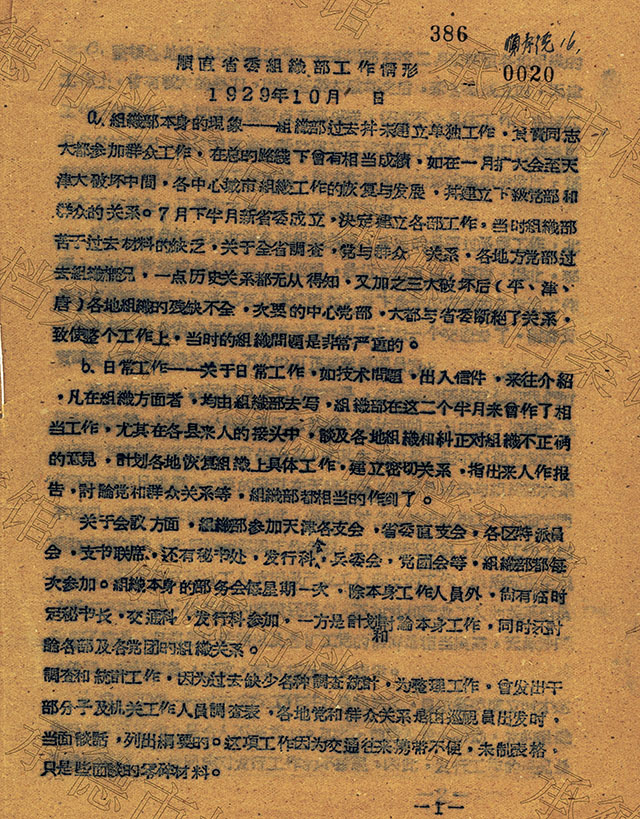 386
顺直统 16.
0020
順直省委組織部工作情形
1929年10月 日
a. 組織部本身的現象——組織部过去并未建立单独工作，負責同志
大都参加群众工作，在总的路綫下曾有相当成績，如在一月扩大会至天
津大破坏中間，各中心城市組織工作的恢复与发展，并建立下級党部和
群众的关系。7月下半月新省委成立，決定建立各部工作。当时組織部
苦于过去材料的缺乏，关于全省調查，党与群众 关系，各地方党部过
去組織概况，一点历史关系都无从得知，又加之三大破坏后（平、津、
唐）各地組織的残缺不全，次要的中心党部，大都与省委断絕了关系，
致使整个工作上，当时的組織問題是非常严重的。
b. 日常工作——关于日常工作，如技术問題，出入信件，来往介紹
，凡在組織方面者，均由組織部去写，組織部在这二个半月来曾作了相
当工作，尤其在各县来人的接头中，談及各地組織和糾正对組織不正确
的意見，計划各地恢复組織上具体工作，建立密切关系，指出来人作报
告，討論党和群众关系等，組織部都相当的作到了。
关于会议方面，組織部参加天津各支会，省委直支会，各区特派員
会，支书联席，还有秘书处，发行科会，兵委会，党团会等，組織部都每
次参加。組織本身的部务会每星期一次，除本身工作人員外，尚有临时
定秘书长，交通科，发行科参加，一方是計划和討論本身工作，同时还討
論各部及各党团的組織关系。
調查和統計工作，因为过去缺少各种調查統計，为整理工作，曾发出干
部分子及机关工作人員調查表，各地党和群众关系是由巡視員出发时，
当面談話，列出綱要的。这項工作因为交通往来异常不便，未制表格，
只是些面談的零碎材料。
—1—
承德市档案馆